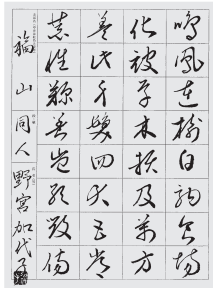 鳴鳳在樹白駒食場
化被草木賴及萬方
蓋此身髮四大五常
恭惟鞠養豈敢毀傷
福山 同人 野宮加代子